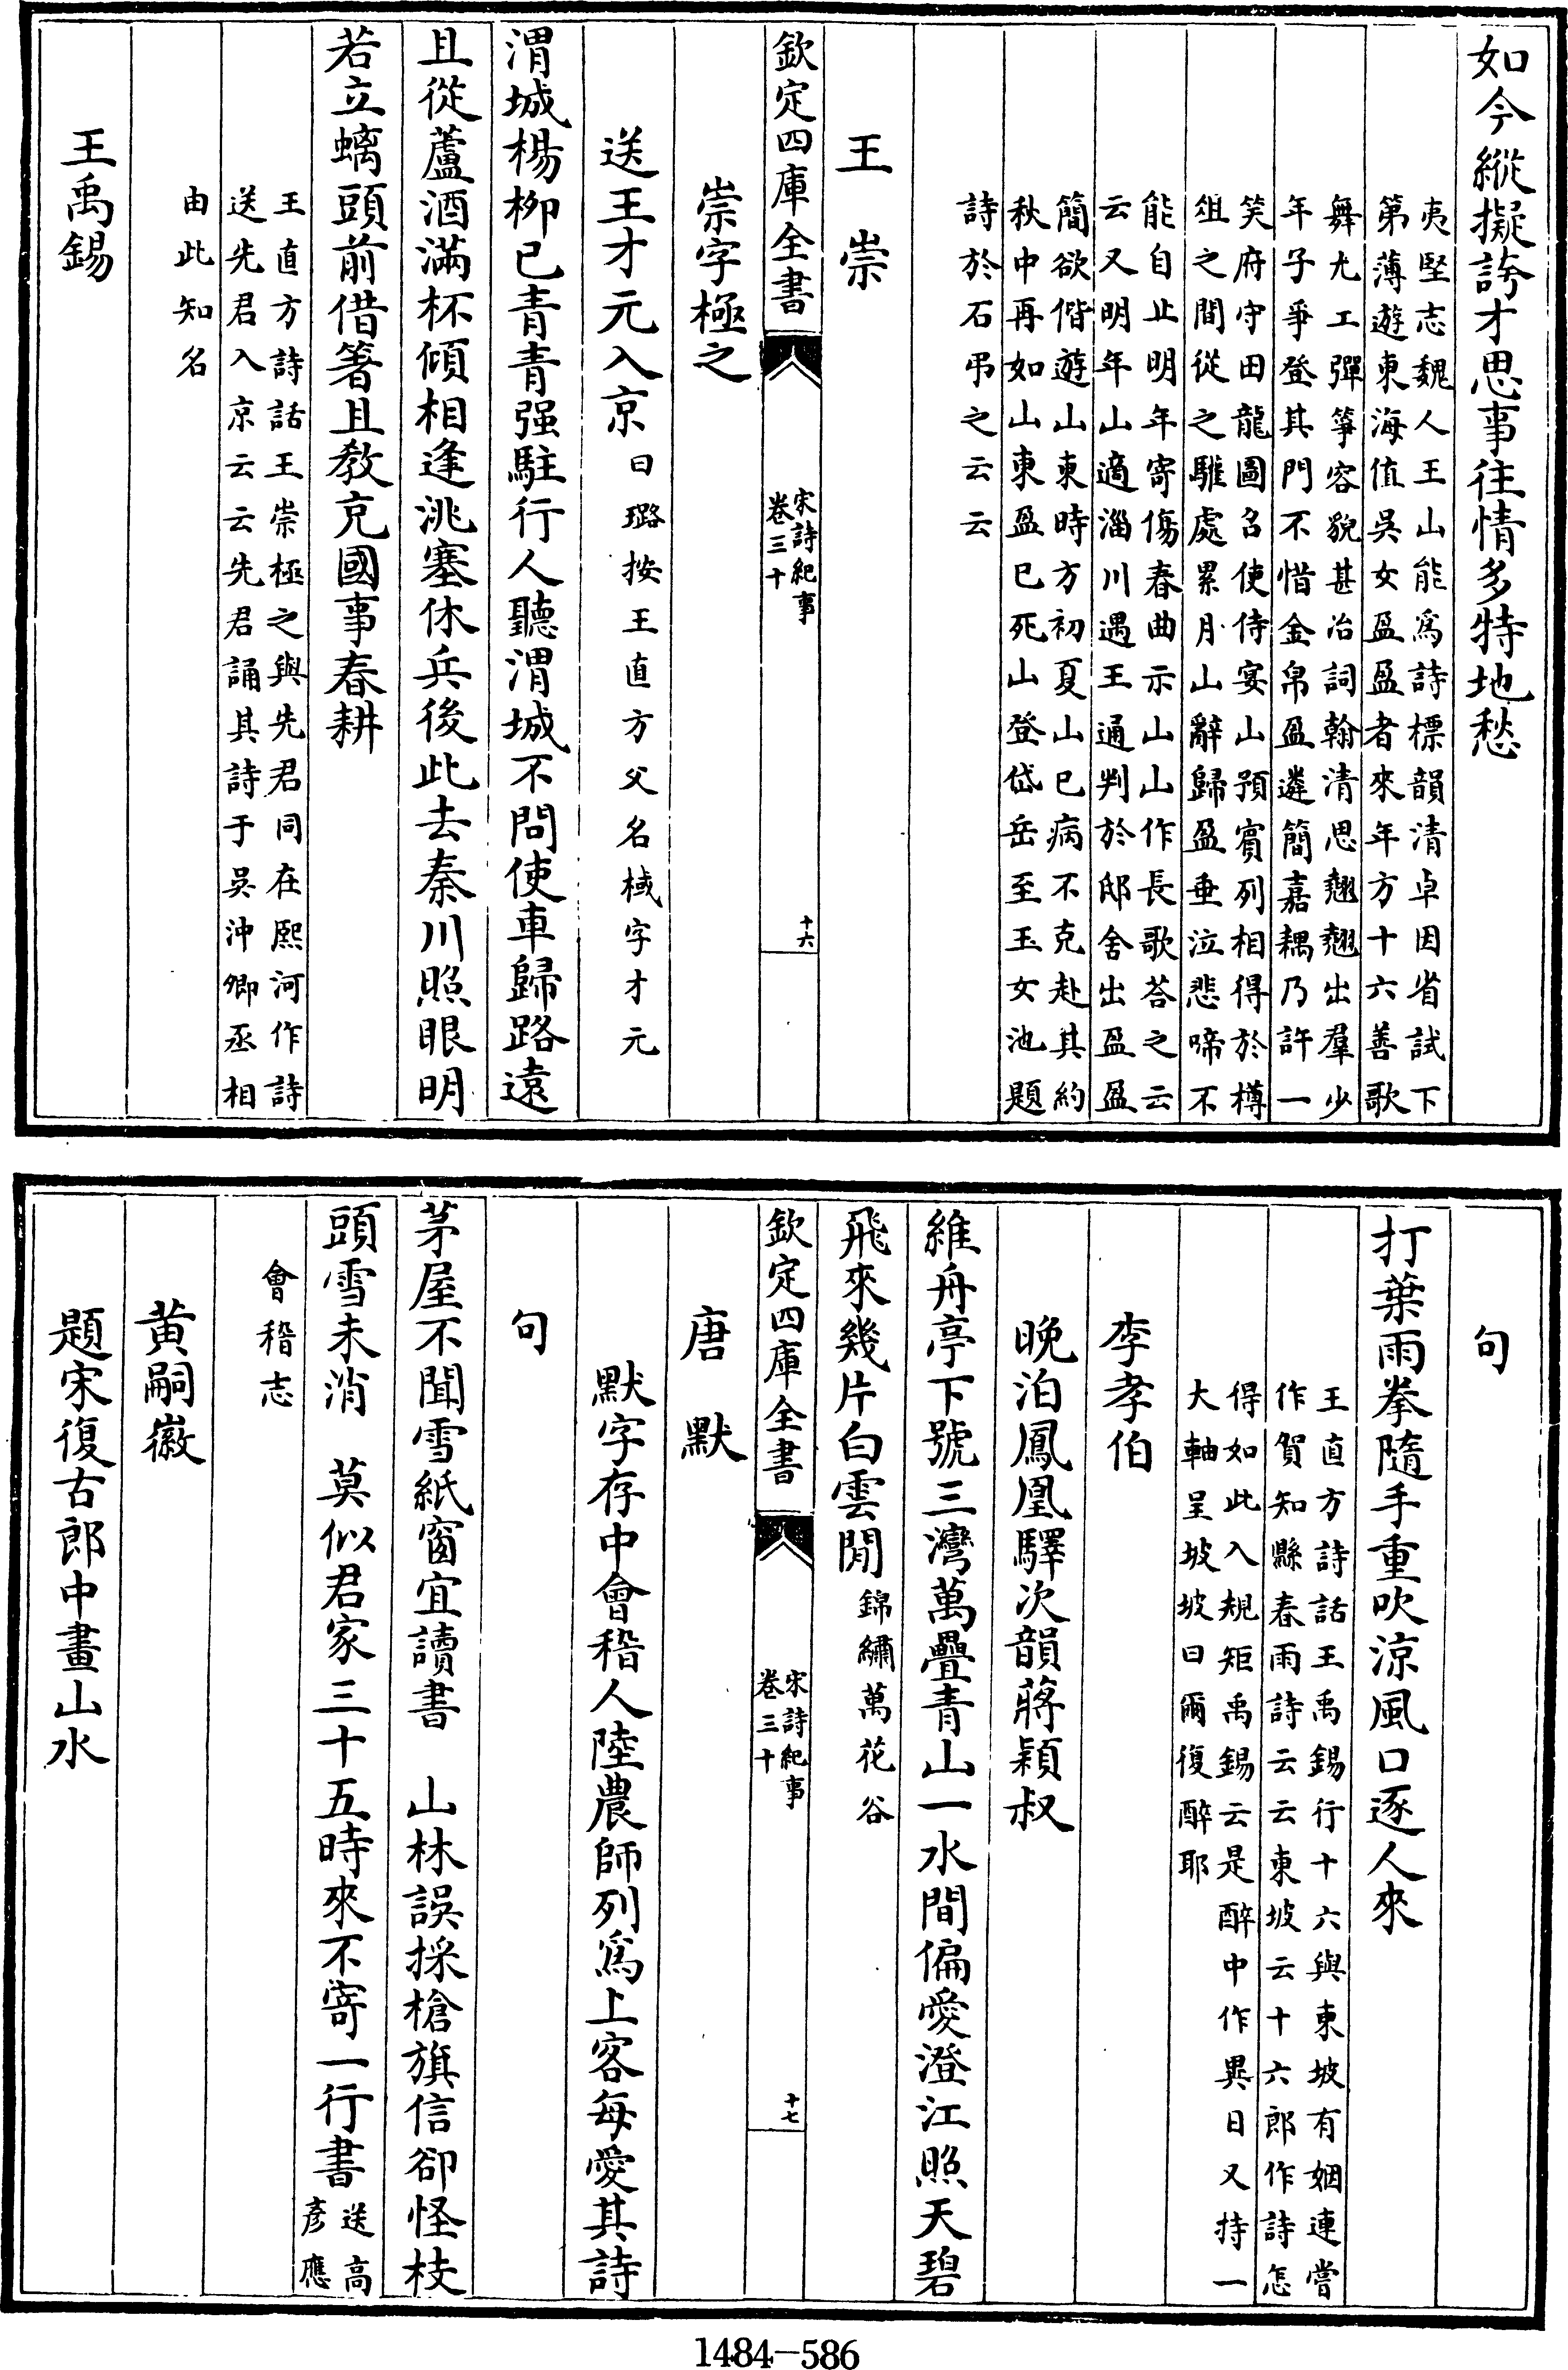 如今縱擬誇才思事往情多特地愁
夷堅志魏人王山能爲詩標韻清卓因省試下
第薄遊東海值吳女盈盈者來年方十六善歌
舞尤工彈箏容貌甚冶詞翰清思翹翹出羣少
年子爭登其門不惜金帛盈遴簡嘉耦乃許一
笑府守田龍圖召使侍宴山預賓列相得於樽
俎之間從之驩處累月山辭歸盈垂泣悲啼不
能自止明年寄傷春曲示山山作長歌荅之云
云又明年山適淄川遇王通判於邸舍出盈盈
簡欲偕遊山東時方初夏山已病不克赴其約
秋中再如山東盈已死山登岱岳至玉女池題
詩於石弔之云云
王崇
欽定四庫全書
宋詩紀事
卷三十
十六
崇字極之
送王才元入京曰璐按王直方父名棫字才元
渭城楊柳已青青强駐行人聽渭城不問使車歸路遠
且從蘆酒滿杯傾相逢洮塞休兵後此去秦川照眼明
若立螭頭前借箸且教充國事春耕
王直方詩話王崇極之與先君同在熙河作詩
送先君入京云云先君誦其詩于吳沖卿丞相
由此知名
王禹錫
句
打葉雨拳隨手重吹涼風口逐人來
王直方詩話王禹錫行十六與東坡有姻連嘗
作賀知縣春雨詩云云東坡云十六郎作詩怎
得如此入規矩禹錫云是醉中作異日又持一
大軸呈坡坡曰爾復醉耶
李孝伯
晚泊鳳凰驛次韻蔣穎叔
維舟亭下號三灣萬疊青山一水間偏愛澄江照天碧
飛來幾片白雲閒錦繡萬花谷
欽定四庫全書
宋詩紀事
卷三十
十七
唐默
默字存中會稽人陸農師列爲上客每愛其詩
句
茅屋不聞雪紙窗宜讀書　山林誤採槍旗信卻怪枝
頭雪未消　莫似君家三十五時來不寄一行書送高彥應
會稽志
黄嗣徽
題宋復古郎中畫山水
1484－586